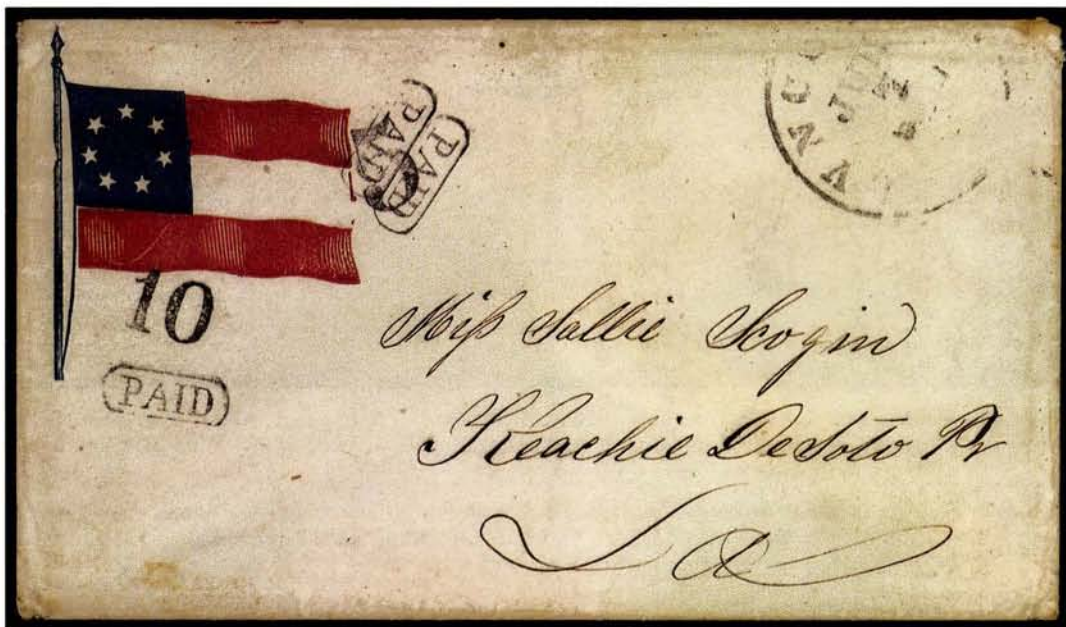 PAID
PAID
5
10
PAID
Miss Sallie Scogin
Keachie DeSoto Pr
La